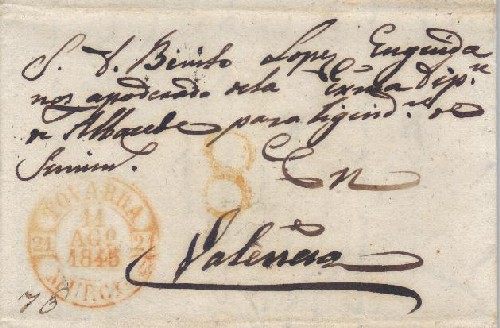 S. D. Benito Lopez Enguida
nos apoderado de la Exma Dip.n
de Albacete para liquid.n de
Sumin.
8
En
Valencia
TOVARRA
11
AGO
1845
21 21
MURCIA
78